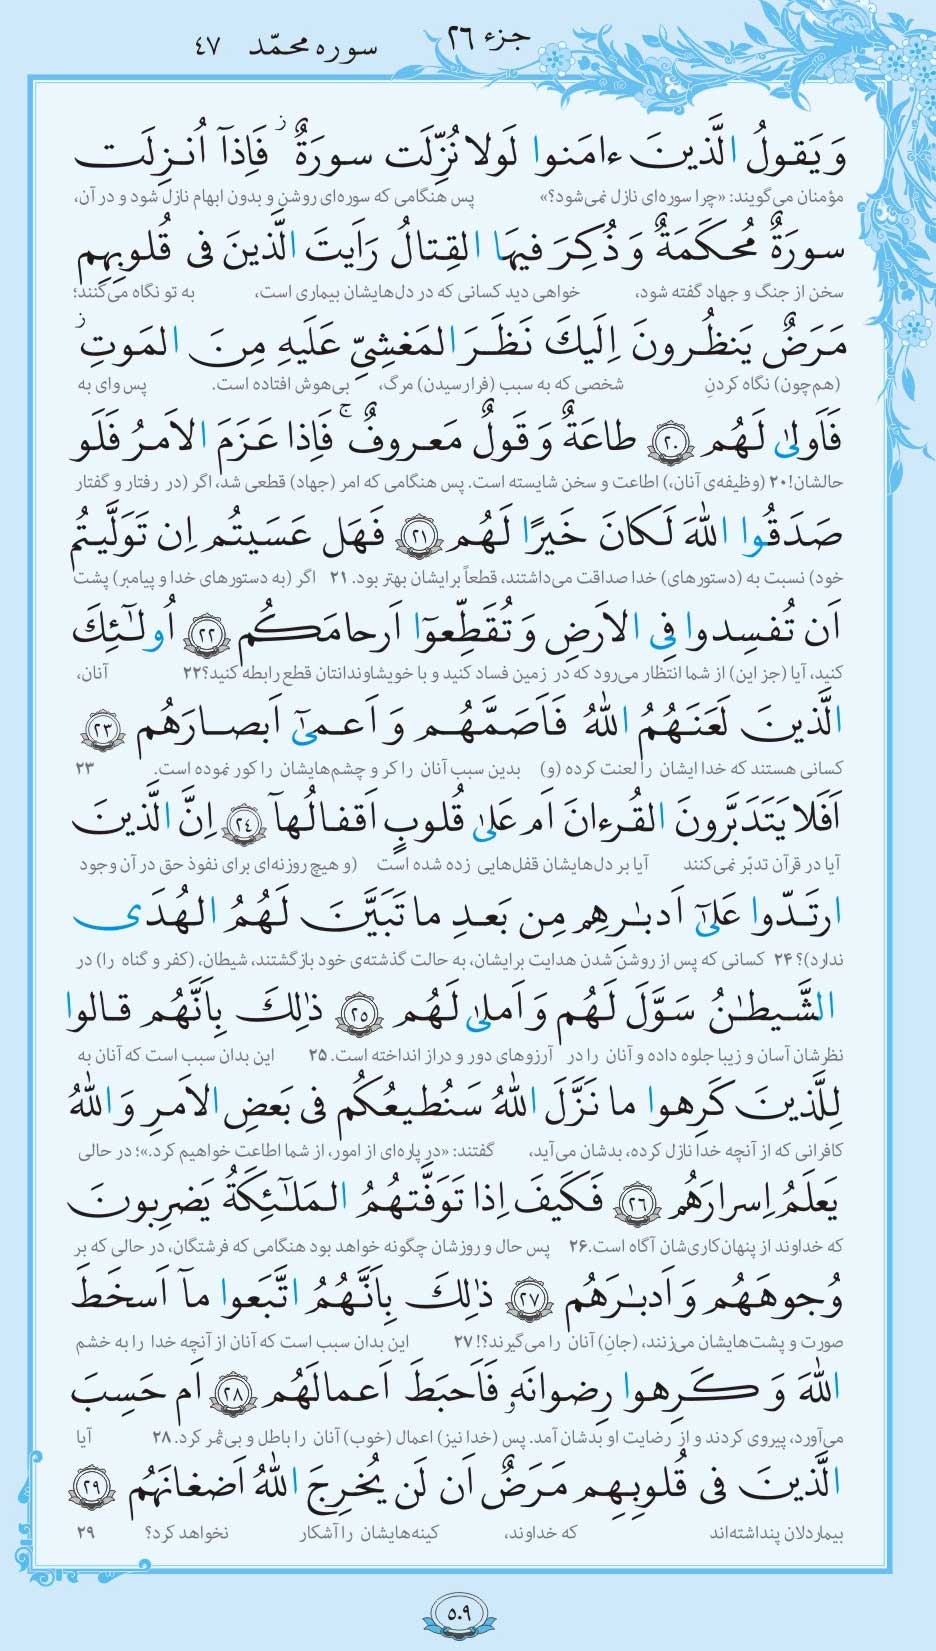 جزء ۲۶ سوره محمّد ۴۷
وَ يَقولُ الَّذينَ ءامَنوا لَولا نُزِّلَت سورَةٌ ۖ فَاِذآ اُنزِلَت
مؤمنان می‌گویند: «چرا سوره‌ای نازل نمی‌شود؟» پس هنگامی که سوره‌ای روشن و بدون ابهام نازل شود و در آن،
سورَةٌ مُحكَمَةٌ وَ ذُكِرَ فيهَا القِتالُ رَاَيتَ الَّذينَ فى قُلوبِهِم
سخن از جنگ و جهاد گفته شود، خواهی دید کسانی که در دل‌هایشان بیماری است، به تو نگاه می‌کنند؛
مَرَضٌ يَنظُرونَ اِلَيكَ نَظَرَ المَغشِىِّ عَلَيهِ مِنَ المَوتِ ز
(هم‌چون) نگاه کردنِ شخصی که به سبب (فرارسیدن) مرگ، بی‌هوش افتاده است. پس وای به
فَاَولىٰ لَهُم ﴿۲۰﴾ طاعَةٌ وَ قَولٌ مَعروفٌ ۚ فَاِذا عَزَمَ الاَمرُ فَلَو
حالشان! ۲۰ (وظیفه‌ی آنان،) اطاعت و سخن شایسته است. پس هنگامی که امر (جهاد) قطعی شد، اگر (در رفتار و گفتار
صَدَقُوا اللّٰهَ لَكانَ خَيرًا لَهُم ﴿۲۱﴾ فَهَل عَسَيتُم اِن تَوَلَّيتُم
خود) نسبت به (دستورهای) خدا صداقت می‌داشتند، قطعاً برایشان بهتر بود. ۲۱ اگر (به دستورهای خدا و پیامبر) پشت
اَن تُفسِدوا فِى الاَرضِ وَ تُقَطِّعوٓا اَرحامَكُم ﴿۲۲﴾ اُولٰٓئِكَ
کنید، آیا (جز این) از شما انتظار می‌رود که در زمین فساد کنید و با خویشاوندانتان قطع رابطه کنید؟ ۲۲ آنان،
الَّذينَ لَعَنَهُمُ اللّٰهُ فَاَصَمَّهُم وَ اَعمىٰٓ اَبصارَهُم ﴿۲۳﴾
کسانی هستند که خدا ایشان را لعنت کرده (و) بدین سبب آنان را کر و چشم‌هایشان را کور نموده است. ۲۳
اَفَلا يَتَدَبَّرونَ القُرءانَ اَم عَلىٰ قُلوبٍ اَقفالُهآ ﴿۲۴﴾ اِنَّ الَّذينَ
آیا در قرآن تدبّر نمی‌کنند آیا بر دل‌هایشان قفل‌هایی زده شده است (و هیچ روزنه‌ای برای نفوذ حق در آن وجود
ارتَدّوا عَلىٰٓ اَدبٰرِهِم مِن بَعدِ ما تَبَيَّنَ لَهُمُ الهُدَى
ندارد)؟ ۲۴ کسانی که پس از روشن شدن هدایت برایشان، به حالت گذشته‌ی خود بازگشتند، شیطان، (کفر و گناه را) در
الشَّيطٰنُ سَوَّلَ لَهُم وَ اَملىٰ لَهُم ﴿۲۵﴾ ذٰلِكَ بِاَنَّهُم قالوا
نظرشان آسان و زیبا جلوه داده و آنان را در آرزوهای دور و دراز انداخته است. ۲۵ این بدان سبب است که آنان به
لِلَّذينَ كَرِهوا ما نَزَّلَ اللّٰهُ سَنُطيعُكُم فى بَعضِ الاَمرِ وَ اللّٰهُ
کافرانی که از آنچه خدا نازل کرده، بدشان می‌آید، گفتند: «در پاره‌ای از امور، از شما اطاعت خواهیم کرد.»؛ در حالی
يَعلَمُ اِسرارَهُم ﴿۲۶﴾ فَكَيفَ اِذا تَوَفَّتهُمُ المَلٰٓئِكَةُ يَضرِبونَ
که خداوند از پنهان‌کاری‌شان آگاه است. ۲۶ پس حال و روزشان چگونه خواهد بود هنگامی که فرشتگان، در حالی که بر
وُجوهَهُم وَ اَدبٰرَهُم ﴿۲۷﴾ ذٰلِكَ بِاَنَّهُمُ اتَّبَعوا مآ اَسخَطَ
صورت و پشت‌هایشان می‌زنند، (جانِ) آنان را می‌گیرند؟! ۲۷ این بدان سبب است که آنان از آنچه خدا را به خشم
اللّٰهَ وَ كَرِهوا رِضوانَهٗ فَاَحبَطَ اَعمالَهُم ﴿۲۸﴾ اَم حَسِبَ
می‌آورد، پیروی کردند و از رضایت او بدشان آمد. پس (خدا نیز) اعمال (خوب) آنان را باطل و بی‌ثمر کرد. ۲۸ آیا
الَّذينَ فى قُلوبِهِم مَرَضٌ اَن لَن يُخرِجَ اللّٰهُ اَضغانَهُم ﴿۲۹﴾
بیماردلان پنداشته‌اند که خداوند، کینه‌هایشان را آشکار نخواهد کرد؟ ۲۹
۵۰۹